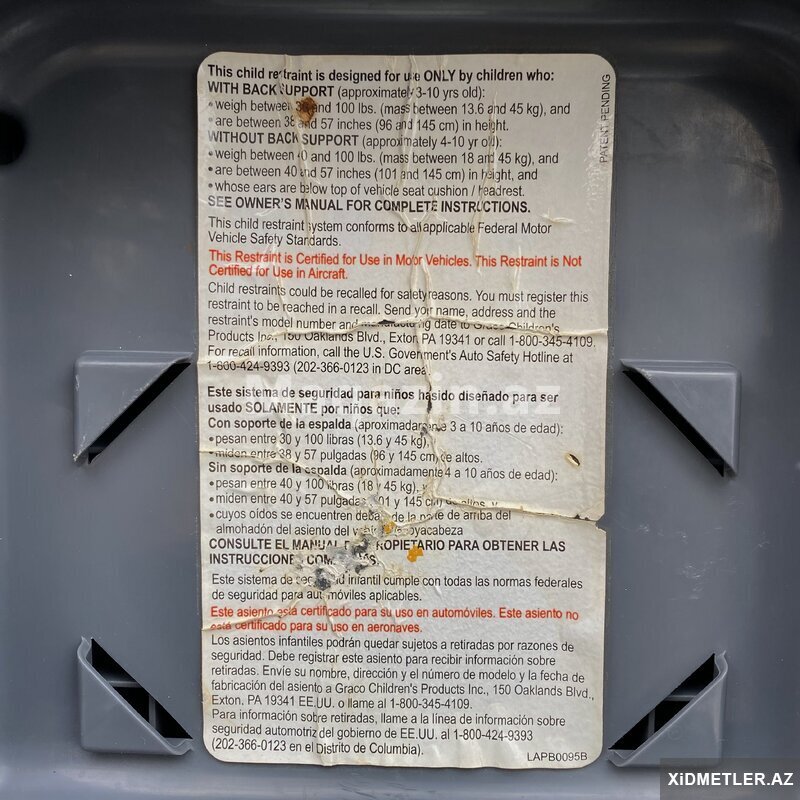 This child restraint is designed for use ONLY by children who:
WITH BACK SUPPORT (approximately 3-10 yrs old):
• weigh between 30 and 100 lbs. (mass between 13.6 and 45 kg), and
• are between 38 and 57 inches (96 and 145 cm) in height.
WITHOUT BACK SUPPORT (approximately 4-10 yr old):
• weigh between 40 and 100 lbs. (mass between 18 and 45 kg), and
• are between 40 and 57 inches (101 and 145 cm) in height, and
• whose ears are below top of vehicle seat cushion / headrest.
SEE OWNER'S MANUAL FOR COMPLETE INSTRUCTIONS.
This child restraint system conforms to all applicable Federal Motor
Vehicle Safety Standards.
This Restraint is Certified for Use in Motor Vehicles. This Restraint is Not
Certified for Use in Aircraft.
Child restraints could be recalled for safety reasons. You must register this
restraint to be reached in a recall. Send your name, address and the
restraint's model number and manufacturing date to Graco Children's
Products Inc., 150 Oaklands Blvd., Exton, PA 19341 or call 1-800-345-4109.
For recall information, call the U.S. Government's Auto Safety Hotline at
1-800-424-9393 (202-366-0123 in DC area).
Este sistema de seguridad para niños ha sido diseñado para ser
usado SOLAMENTE por niños que:
Con soporte de la espalda (aproximadamente 3 a 10 años de edad):
• pesan entre 30 y 100 libras (13.6 y 45 kg),
• miden entre 38 y 57 pulgadas (96 y 145 cm) de altos.
Sin soporte de la espalda (aproximadamente 4 a 10 años de edad):
• pesan entre 40 y 100 libras (18 y 45 kg), y
• miden entre 40 y 57 pulgadas (101 y 145 cm) de altos, y
• cuyos oídos se encuentren debajo de la parte de arriba del
almohadón del asiento del apoyacabeza
CONSULTE EL MANUAL DEL PROPIETARIO PARA OBTENER LAS
INSTRUCCIONES COMPLETAS.
Este sistema de seguridad infantil cumple con todas las normas federales
de seguridad para automóviles aplicables.
Este asiento está certificado para su uso en automóviles. Este asiento no
está certificado para su uso en aeronaves.
Los asientos infantiles podrán quedar sujetos a retiradas por razones de
seguridad. Debe registrar este asiento para recibir información sobre
retiradas. Envíe su nombre, dirección y el número de modelo y la fecha de
fabricación del asiento a Graco Children's Products Inc., 150 Oaklands Blvd.,
Exton, PA 19341 EE.UU. o llame al 1-800-345-4109.
Para información sobre retiradas, llame a la línea de información sobre
seguridad automotriz del gobierno de EE.UU. al 1-800-424-9393
(202-366-0123 en el Distrito de Columbia).
LAPB0095B
PATENT PENDING
Magazin.az
XiDMETLER.AZ